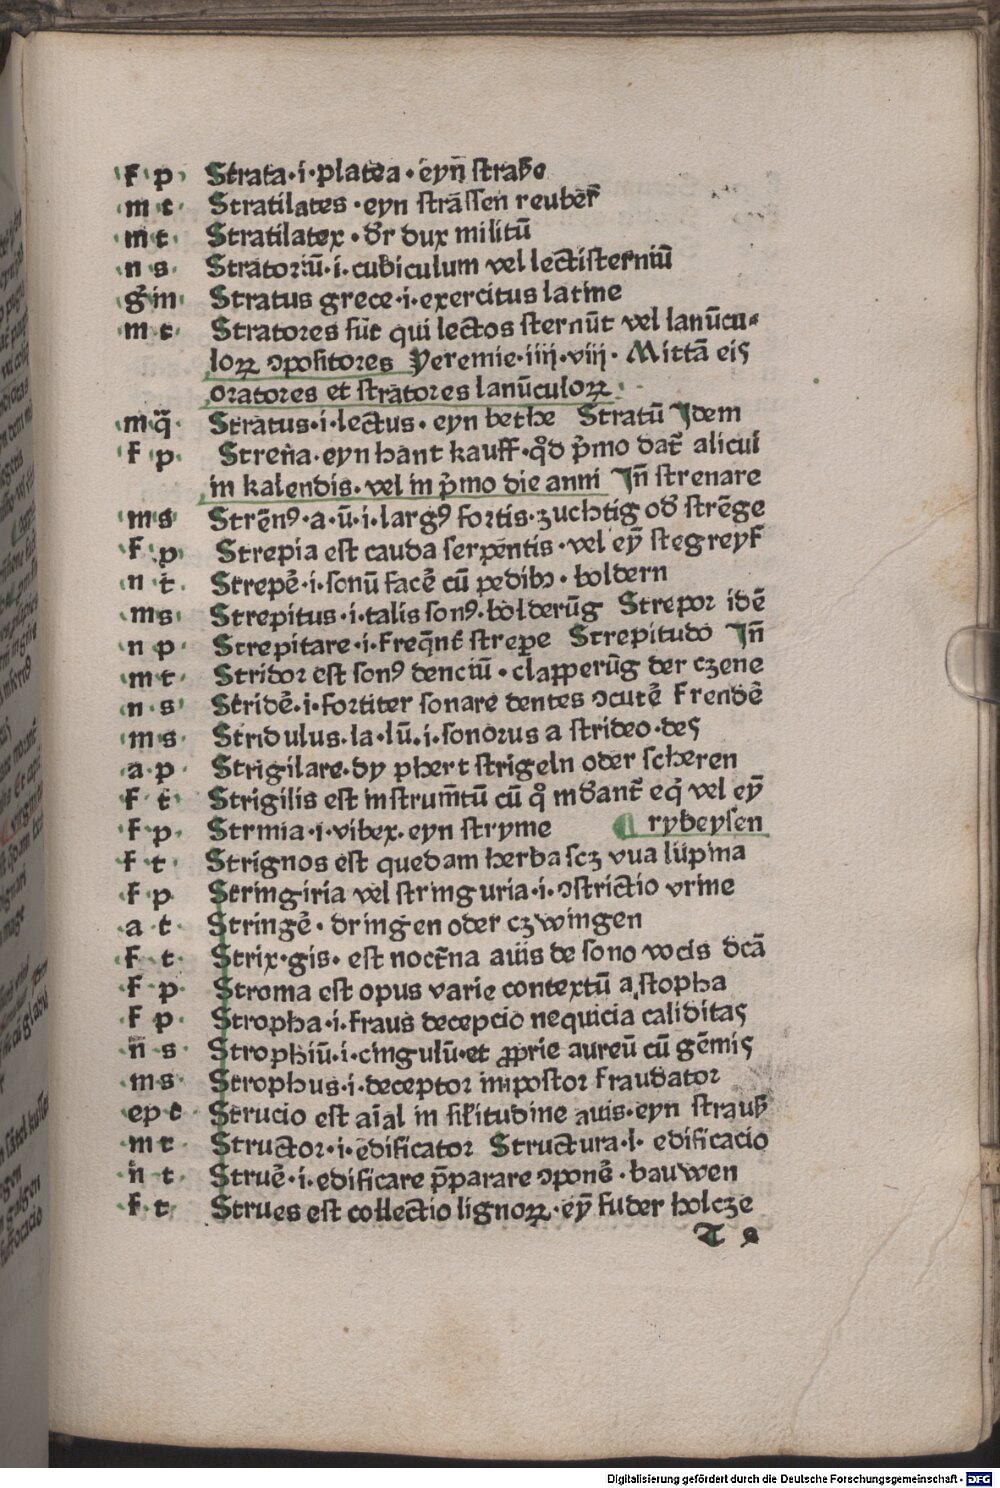 f p Strata·i·platea·eyn̄ straße
m t Stratilates·eyn strāssen reuber̄
m t Stratilatex·dr̄ dux militū
n s Stratoriū·i·cubiculum vel lectisterniū
g̊ m Stratus grece·i·exercitus latine
m t Stratores sūt qui lectos sternūt vel lanūcu⸗
loꝝ ↄpositores Yeremie·iiij·viij· Mittā eiꝭ
oratores et stratores lanūculoꝝ·
m q̄ Stratus·i·lectus·eyn bethe Stratū Idem
f p Strena·eyn hant kauff·qd̄ p̄mo dat̄ alicui
in kalendis·vel in p̄mo die anni In̄ strenare
m s Strēnꝰ·a·ū·i·largꝰ fortis·zuchtig od̄ strēge
f p Strepia est cauda serpentis·vel eȳ stegreyf
n t Strepē·i·sonū facē cū pedibꝫ·boldern
m s Strepitus·i·talis sonꝰ·bolderūg Strepor idē
n p Strepitare·i·freq̄nt̄ strepe Strepitudo In̄
m t Stridor est sonꝰ denciū·clapperūg der czene
n s Stridē·i·fortiter sonare dentes ↄcutē frendē
m s Stridulus·la·lū·i·sonorus a strideo·deꝭ
a p Strigilare·dy phert strigeln oder scheren
f t Strigilis est instrum̄tū cū q̊ md̄ant̄ eq̇ vel eȳ
f p Strima·i·vibex·eyn stryme ¶ rybeysen
f t Strignos est quedam herba scꝫ vua lupina
f p Stringiria vel stringuria·i·ↄstrictio vrine
a t Stringē·dringen oder czwingen
f t Strix·gis·est noct̄na auis de sono vocis dcā
f p Stroma est opus varie contextū a stopha
f p Stropha·i·fraus decepcio nequicia caliditaꝭ
n s Strophiū·i·cingulū·et ꝓprie aureū cū gēmiꝭ
m s Strophus·i·deceptor impostor fraudator
ep t Strucio est aīal in sil̄itudine auis·eyn strauß
m t Structor·i·edificator Structura·i·edificacio
n t Struē·i·edificare p̄parare ↄponē·bauwen
f t Strues est collectio lignoꝝ·eȳ fuder holcze
T
Digitalisierung gefördert durch die Deutsche Forschungsgemeinschaft - DFG